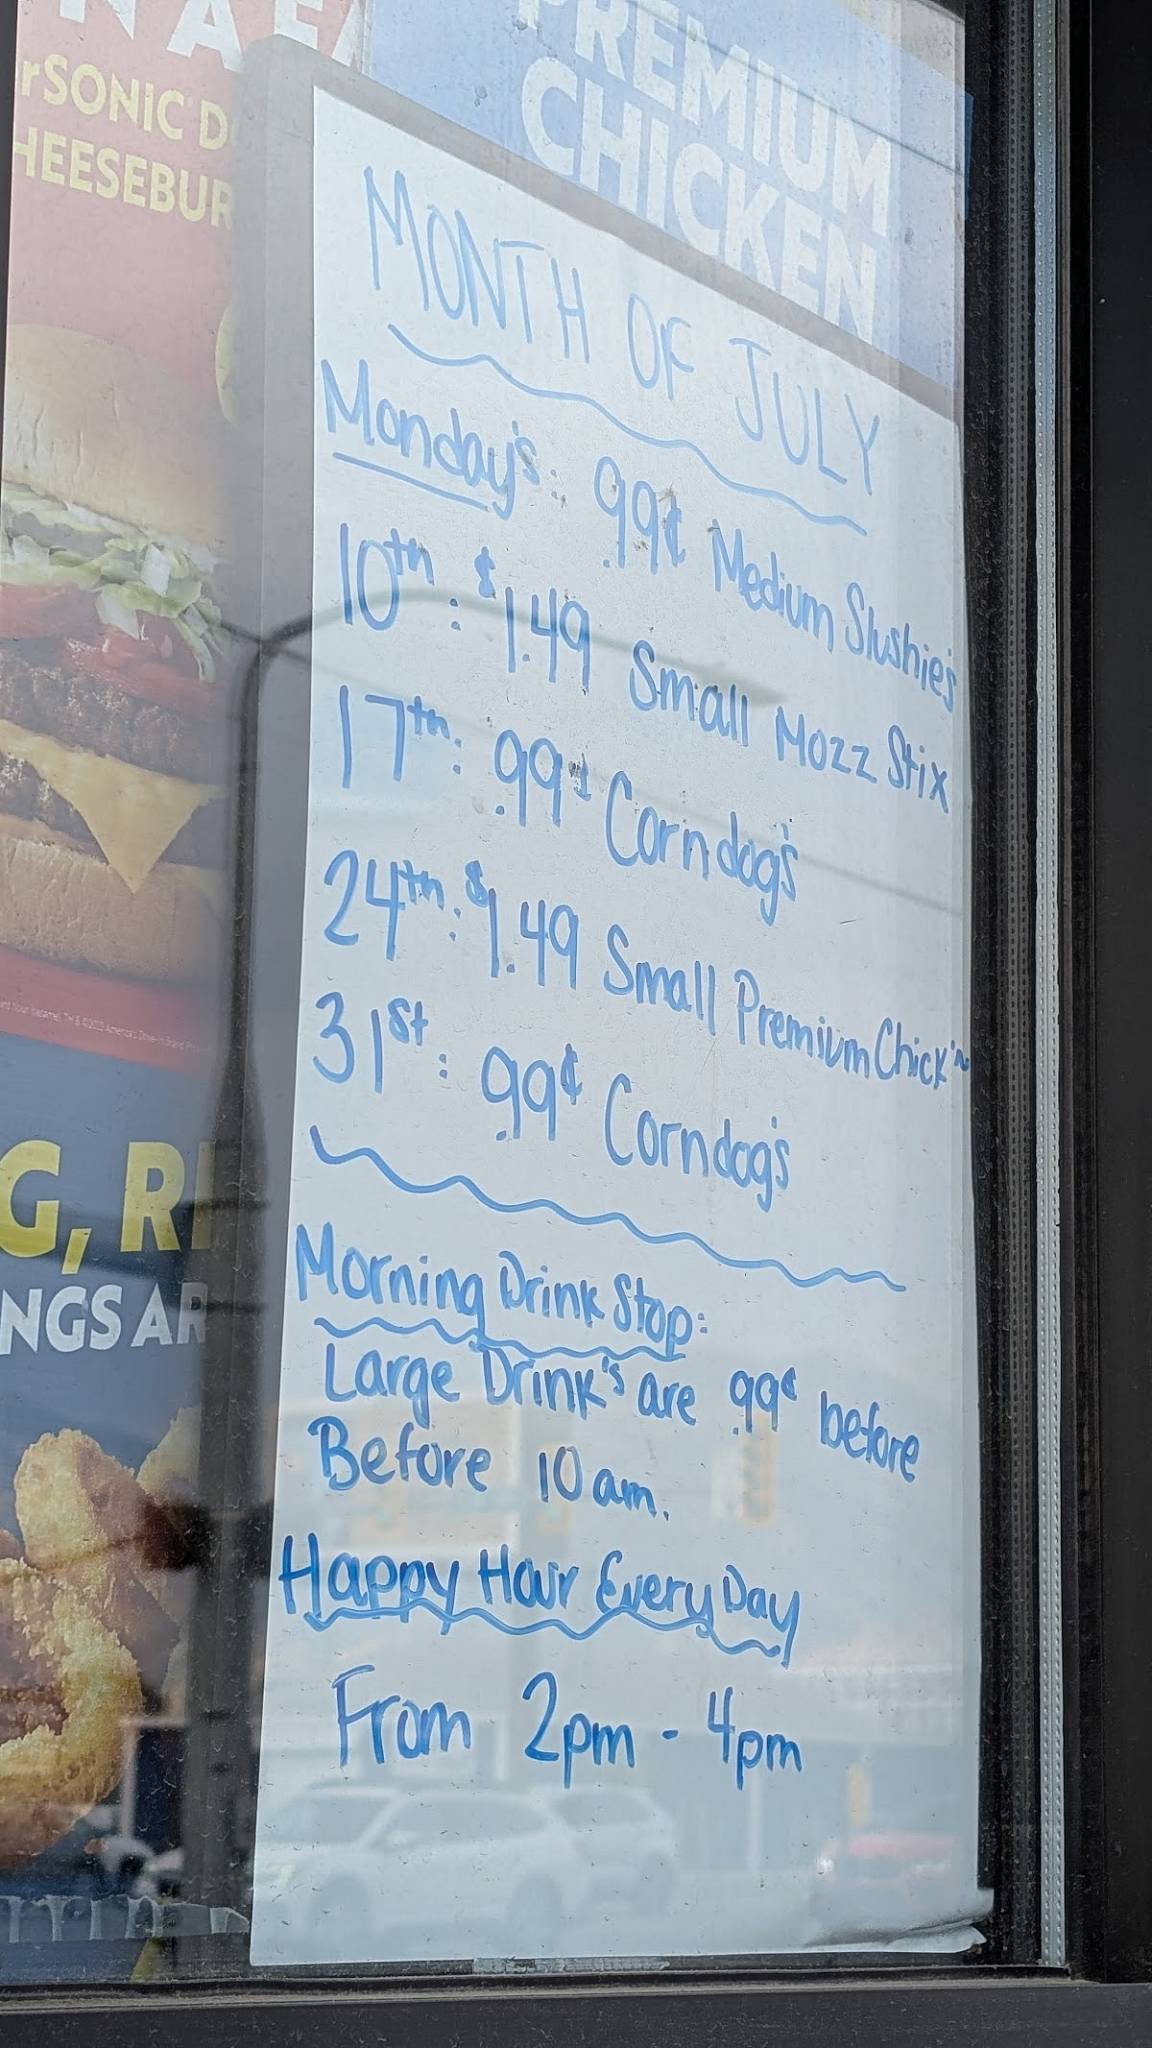 PREMIUM
CHICKEN
rSONIC
HEESEBUR
MONTH OF JULY
Monday's: .99¢ Medium Slushie's
10th: $1.49 Small Mozz Stix
17th: .99¢ Corndog's
24th: $1.49 Small Premium Chick'n
31st: .99¢ Corndog's
Morning Drink Stop:
Large Drink's are .99¢ before
Before 10am.
Happy Hour Every Day
From 2pm - 4pm
G, RI
NGS AR